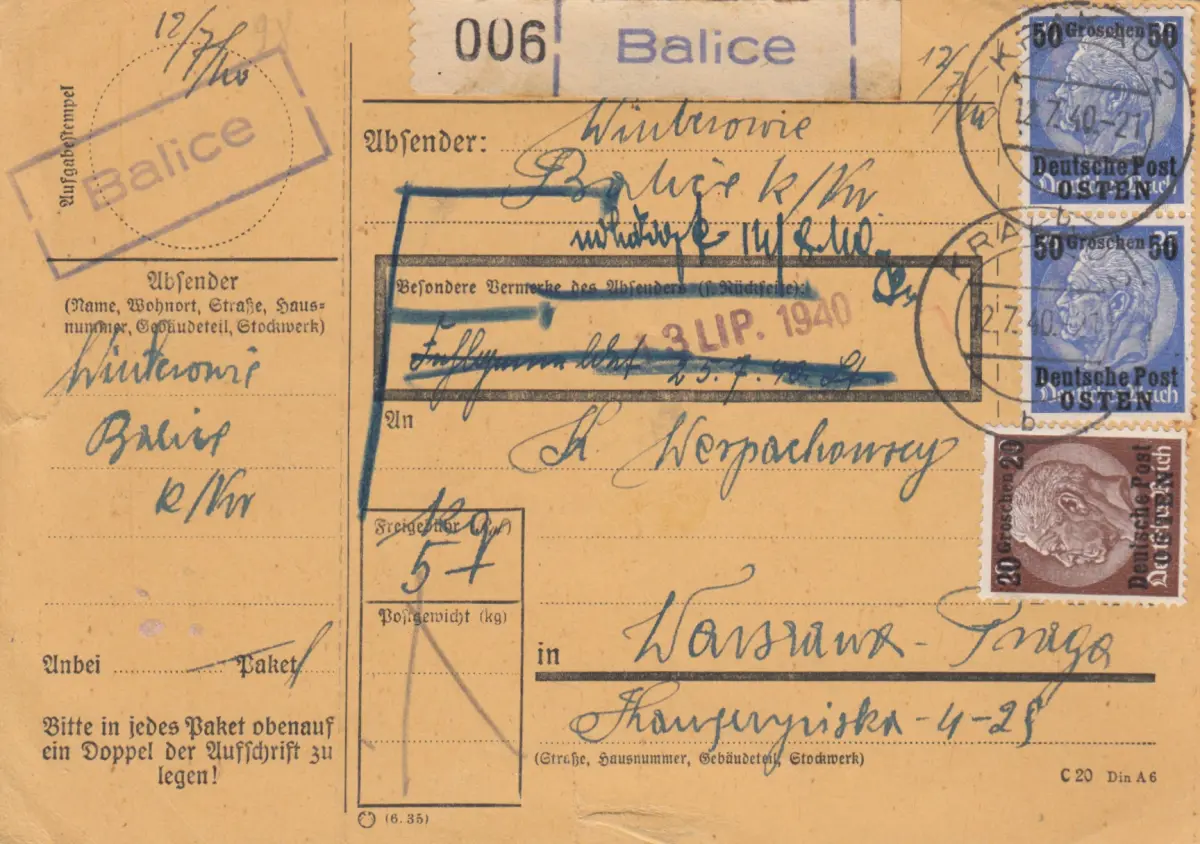 12/7/40
Aufgabestempel
Balice
Absender
(Name, Wohnort, Straße, Haus-
nummer, Gebäudeteil, Stockwerk)
Balice
k/Kr
Anbei Paket
Bitte in jedes Paket obenauf
ein Doppel der Aufschrift zu
legen!
006 Balice
12/7/40
Absender:
Balice k/Kr.
Besondere Vermerke des Absenders (s. Rückseite):
13 LIP. 1940
25.7.40
An
K. Werpachowscy
Freigebühr
Postgewicht (kg)
5
in Warszawa-Praga
4-25
(Straße, Hausnummer, Gebäudeteil, Stockwerk)
C 20 Din A 6
(6. 35)
50 Groschen 50
Deutsche Post
OSTEN
Deutsches Reich
KRAKAU 2
12.7.40.-21
b
50 Groschen 50
Deutsche Post
OSTEN
Deutsches Reich
KRAKAU 2
12.7.40.-21
b
20 Groschen 20
Deutsche Post
OSTEN
Deutsches Reich